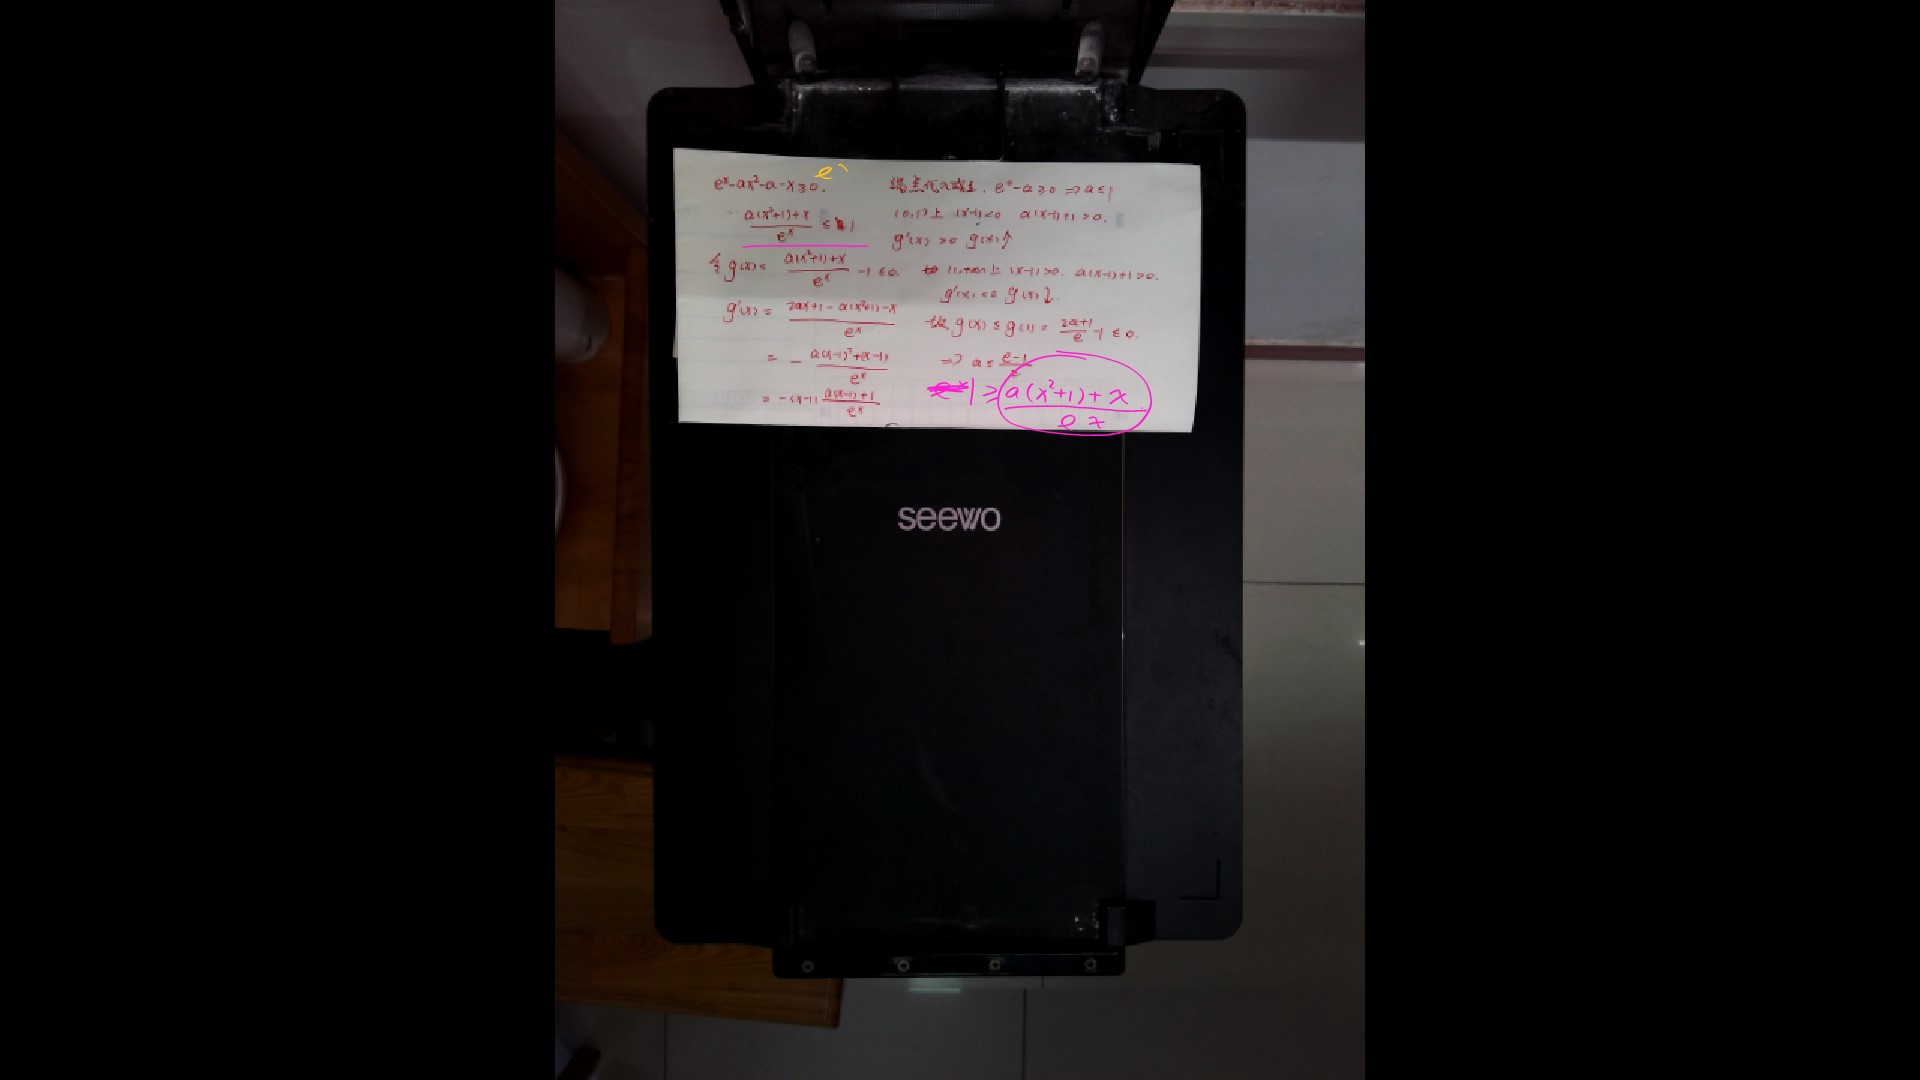 eˣ-ax²-a-x≥0.
eˋ
(a(x²+1)+x)/eˣ ≤ 1
令 g(x)= (a(x²+1)+x)/eˣ -1≤0.
g'(x) = (2ax+1-a(x²+1)-x)/eˣ
= - (a(x-1)²+(x-1))/eˣ
= -(x-1) (a(x-1)+1)/eˣ
端点代入 e⁰-a≥0 ⇒ a≤1
(0,1)上 (x-1)<0 a(x-1)+1>0.
g'(x)>0 g(x)↑
(1,+∞)上 (x-1)>0. a(x-1)+1>0.
g'(x)<0 g(x)↓.
故 g(x)≤g(1)= (2a+1)/e -1≤0.
⇒ a≤ (e-1)/2
1 ≥ (a(x²+1)+x)/eˣ
seewo